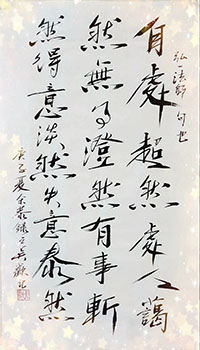 弘一法師句也
自處超然處人藹
然無事澄然有事斬
然得意淡然失意泰然
庚子夏